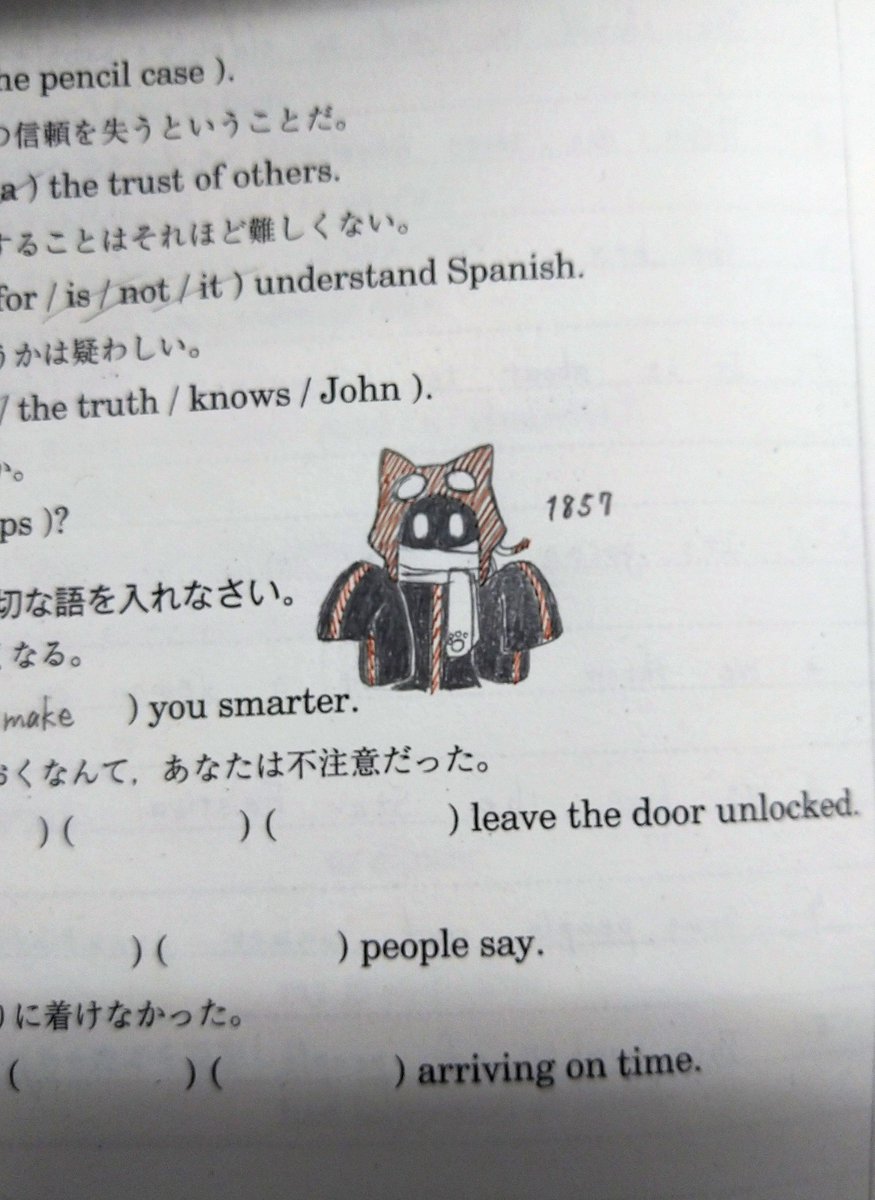 he pencil case ).
の信頼を失うということだ。
a ) the trust of others.
することはそれほど難しくない。
for / is / not / it ) understand Spanish.
うかは疑わしい。
/ the truth / knows / John ).
か。
ps )?
1857
切な語を入れなさい。
くなる。
make ) you smarter.
おくなんて，あなたは不注意だった。
) ( ) ( ) leave the door unlocked.
) ( ) people say.
りに着けなかった。
( ) ( ) arriving on time.